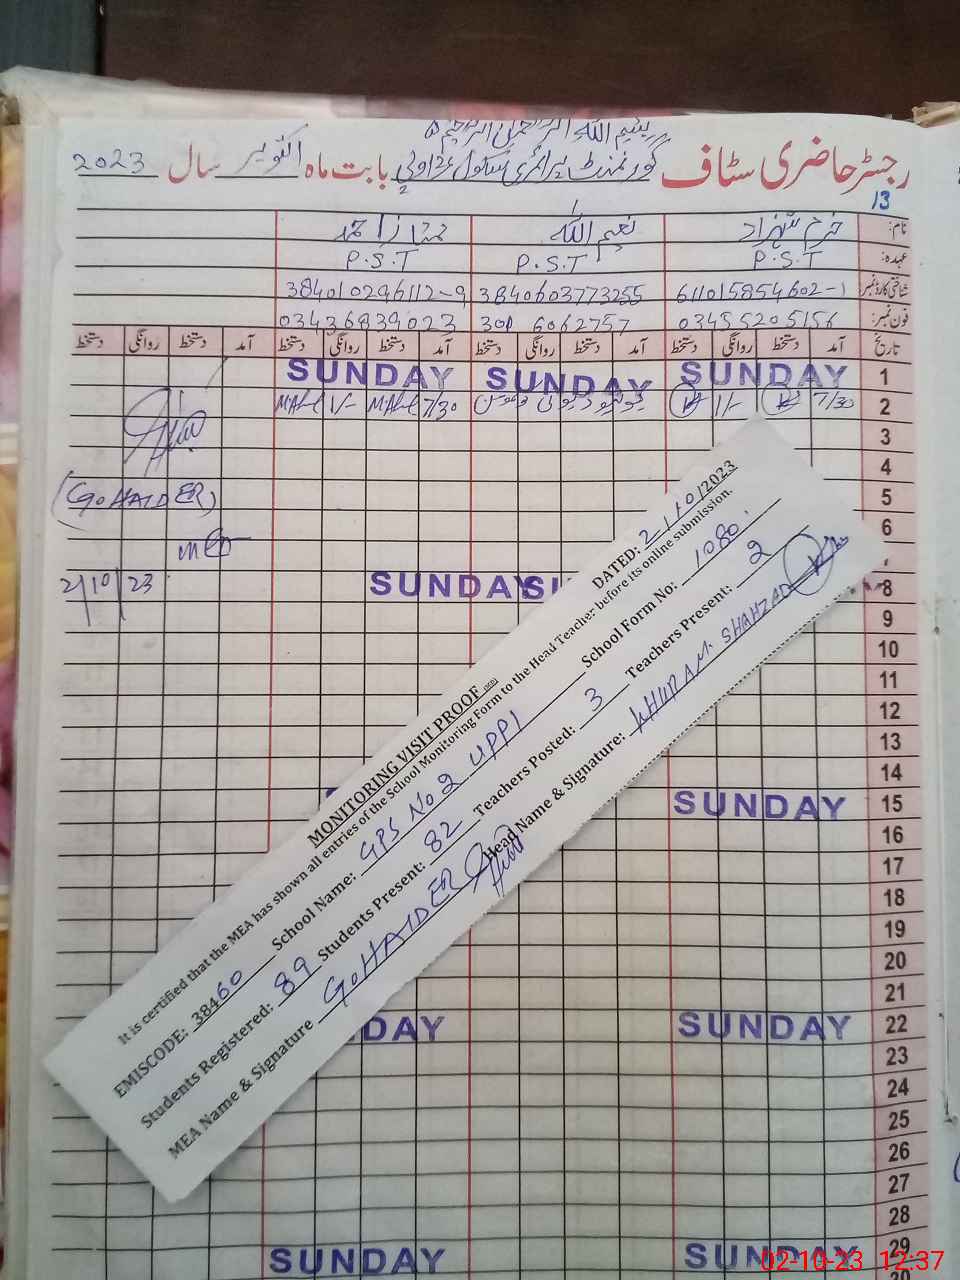 بسم اللہ الرحمن الرحیم
رجسٹر حاضری سٹاف گورنمنٹ پرائمری سکول بابت ماہ اکتوبر سال 2023
13
نام: خرم شہزاد نعیم اللہ ممتاز احمد
عہدہ: P.S.T P.S.T P.S.T
شناختی کارڈ نمبر 611015854602-1 3840603773255 384010296112-9
فون نمبر: 03455205156 301 6062757 03436839023
تاریخ آمد دستخط روانگی دستخط آمد دستخط روانگی دستخط آمد دستخط روانگی دستخط آمد دستخط روانگی دستخط
1 SUNDAY SUNDAY SUNDAY
2 7/30 1/- 7/30 1/-
3
4
5
(G.HAIDER)
6
8 SUNDAY
2/10/23
9
10
11
12
13
14
15 SUNDAY
16
17
18
19
20
21
22 SUNDAY DAY
23
24
25
26
27
28
29 SUNDAY SUNDAY
MONITORING VISIT PROOF DATED: 2/10/2023
It is certified that the MEA has shown all entries of the School Monitoring Form to the Head Teacher before its online submission.
EMISCODE: 38460 School Name: GPS No 2 UPPI School Form No: 1080
Students Registered: 89 Students Present: 82 Teachers Posted: 3 Teachers Present: 2
MEA Name & Signature G.HAIDER Head Name & Signature: KHURAM SHAHZAD
02-10-23 12:37